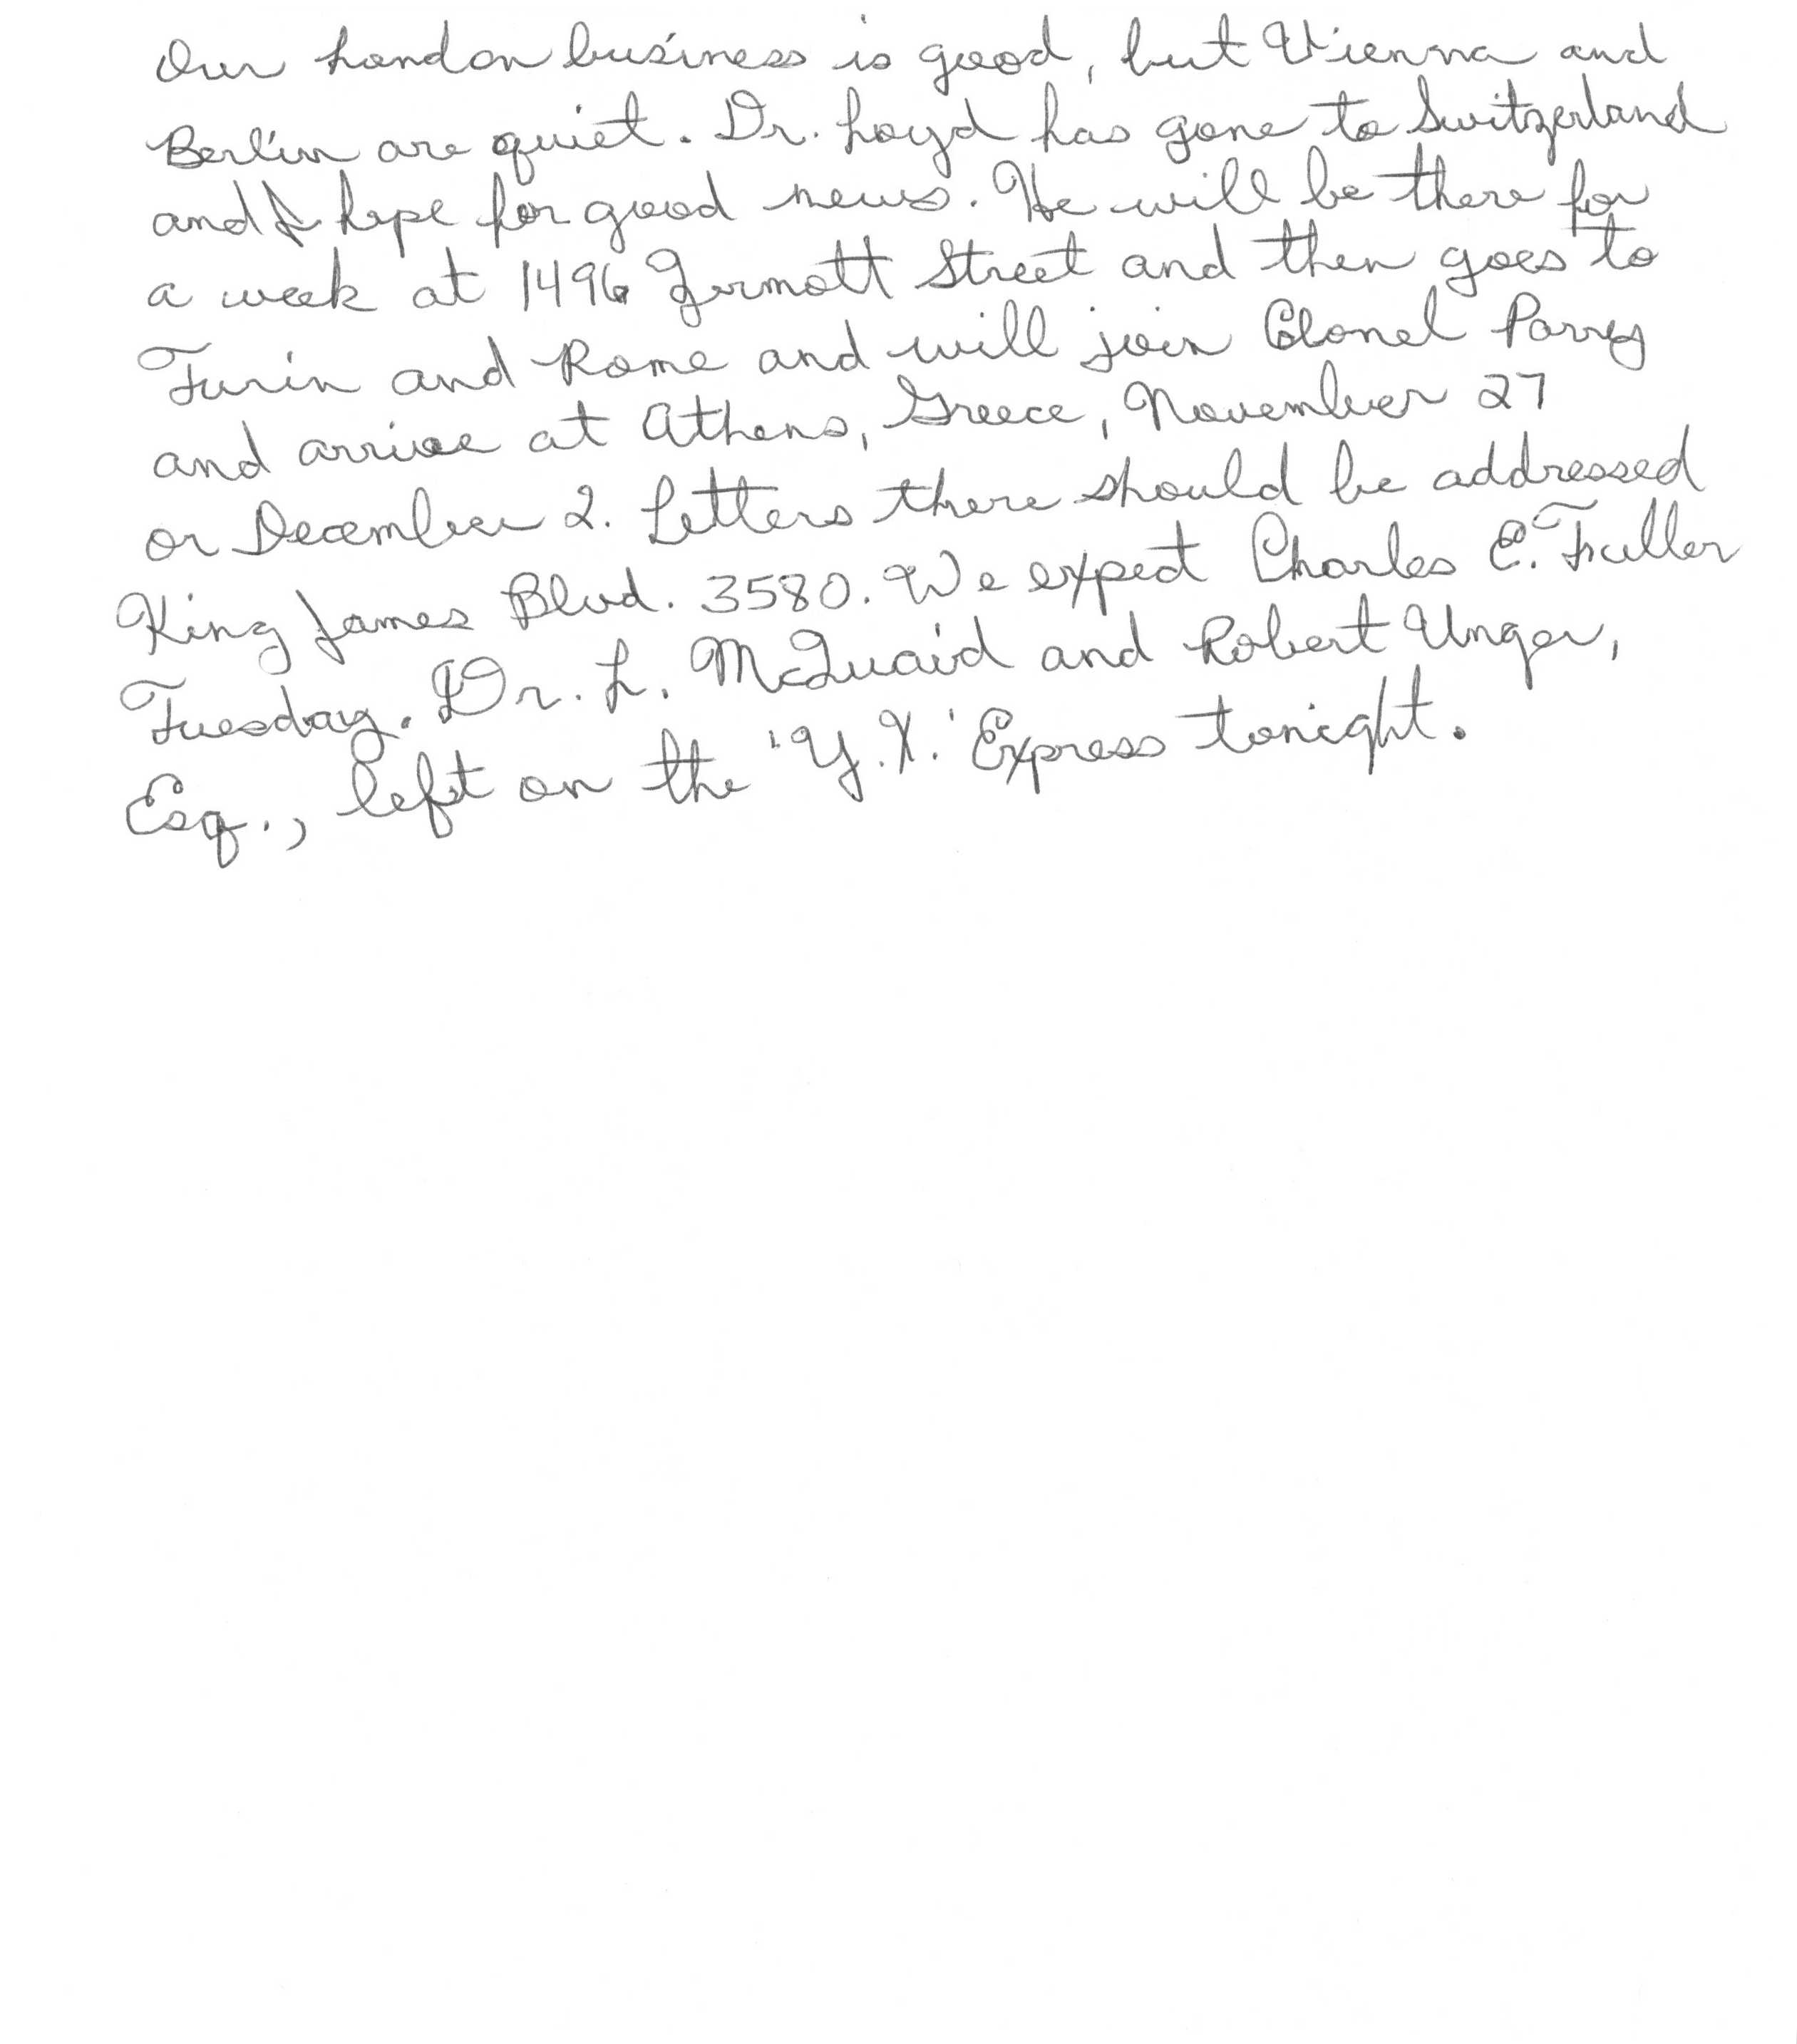 Our London business is good, but Vienna and
Berlin are quiet. Dr. Loyd has gone to Switzerland
and I hope for good news. He will be there for
a week at 1496 Zermott Street and then goes to
Turin and Rome and will join Colonel Parry
and arrive at Athens, Greece, November 27
or December 2. Letters there should be addressed
King James Blvd. 3580. We expect Charles E. Fuller
Tuesday. Dr. L. McQuaid and Robert Unger,
Esq., left on the 'Y.X.' Express tonight.